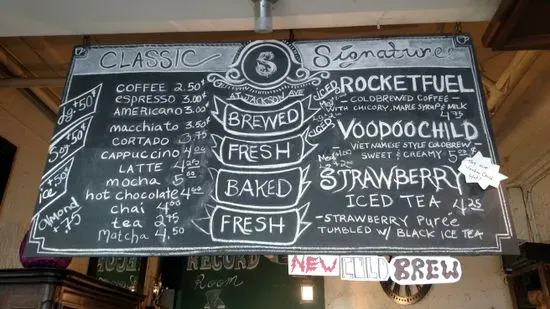 CLASSIC
COFFEE 2.50
espresso 3.00
AMERICANO 3.00
macchiato 3.50
CORTADO 3.75
CAPPUCCINO 4.00
LATTE 4.25
mocha 5
hot chocolate 4.00
chai 4.00
tea 2.75
Matcha 4.50
Soy +.50
Almond +.75
S
AT JACKSON AVE
BREWED
FRESH
BAKED
FRESH
Signature
ROCKETFUEL
- COLDBREWED COFFEE -
WITH CHICORY, MAPLE SYRUP & MILK
4.75
VOODOOCHILD
VIETNAMESE STYLE COLDBREW
SWEET & CREAMY 5.00
STRAWBERRY
ICED TEA 4.25
- STRAWBERRY PUREE
TUMBLED W/ BLACK ICE TEA
NEW COLD BREW
RECORD
Room